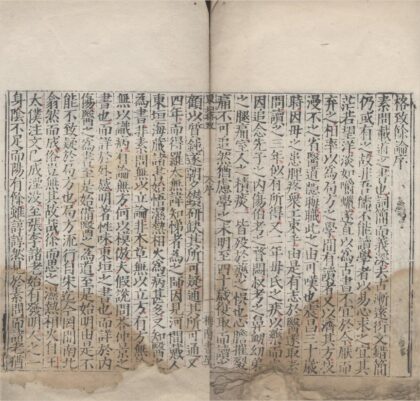 格致餘論序
素問載道之書也詞簡而義深去古漸遠衍文錯簡
仍或有之故非吾儒不能讀學者以易心求之宜其
茫若望洋淡如嚼蠟遂直以為古書不宜於今厭而
棄之相率以為局方之學間有讀者又以濟其方技
漫不之省醫道隱晦職此之由可嘆也震昌三十歲
時因母之患脾疼衆工束手由是有志於醫遂取素
問讀之三年似有所得又二年母氏之疾以藥而安
因追念先子之內傷伯考之瞀悶叔考之鼻衄幼弟
之腿痛室人之積痰一皆歿於藥之誤也心膽摧裂
痛不可追然猶慮學之未明至四十歲復取而讀之
顧以質鈍遂朝夕鑽研缺其所可疑通其所可通又
四年而得羅太無諱知悌者為之師因見河間戴人
東垣海藏諸書始悟濕熱相火為病甚多又知醫之
為書非素問無以立論非本草無以立方有方無論
無以識病有論無方何以模倣夫假說問答仲景之
書也而詳於外感明著性味東垣之書也而詳於內
傷醫之為書至是始備醫之為道至是始明由是不
能不致疑於局方也局方流行自宋迄今罔間南北
翕然而成俗豈無其故哉徐而思之濕熱相火自王
太僕注文已成湮沒至張李諸老始有發明人之一
身陰不足而陽有餘雖諄諄然見於素問而諸老猶